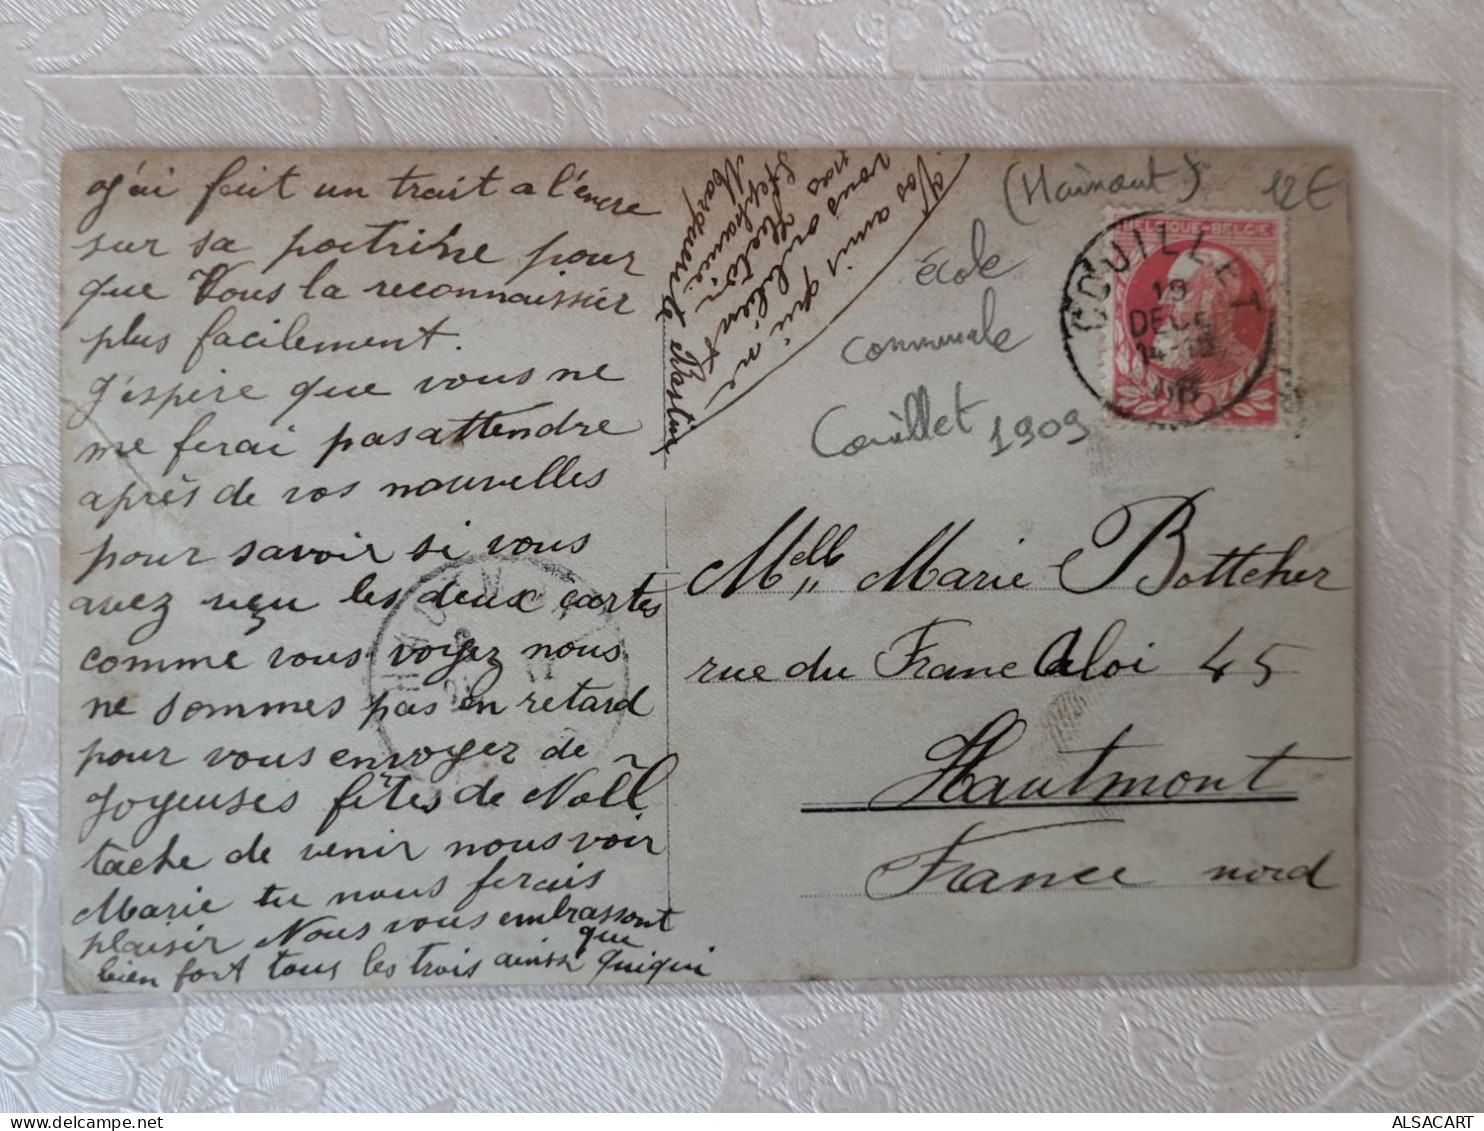 J'ai fait un trait a l'encre
sur sa poitrine pour
que Vous la reconnaissier
plus facilement.
J'espère que vous ne
me ferai pas attendre
après de vos nouvelles
pour savoir si vous
avez reçu les deux cartes
comme vous voyez nous
ne sommes pas en retard
pour vous envoyez de
Joyeuses fêtes de Noël
tache de venir nous voir
Marie tu nous ferais
plaisir Nous vous embrassont
bien fort tous les trois ainsi que quiqui
Vos amis qui ne
vous oublient
pas Hector
Stéphanie
Marguerite
(Hainaut)
12€
école
communale
Couillet 1909
BELGIQUE-BELGIE
COUILLET
19
DECE
14-15
10
Melle Marie Bottcher
rue du Franc Aloi 45
Hautmont
France nord
ALSACART